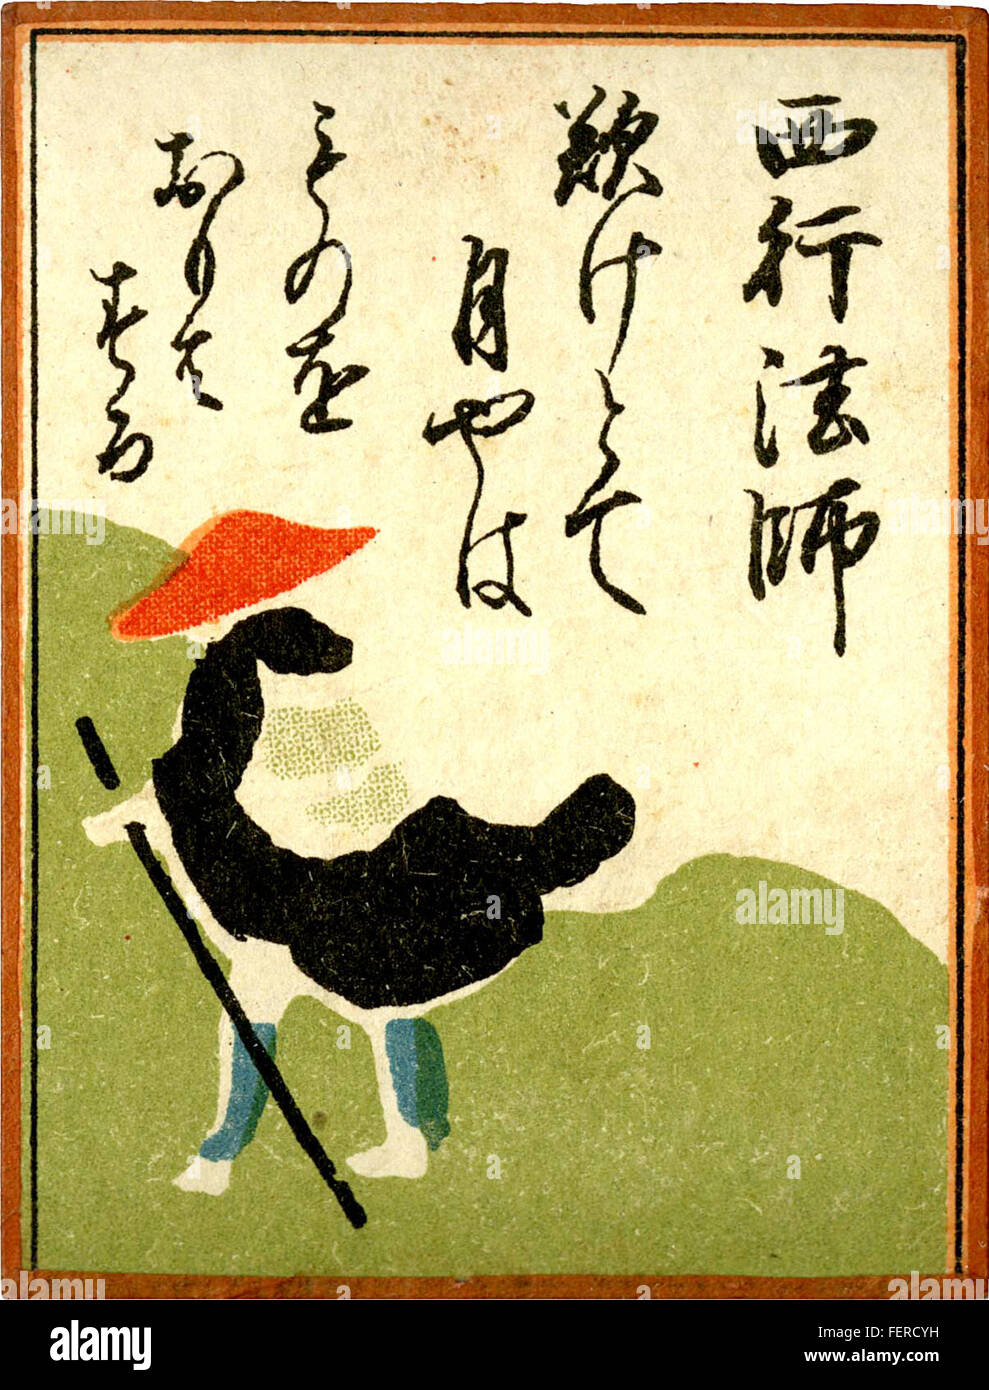 西行法師
歎けとて
月やは
ものを
おもは
する
alamy
Image ID: FERCYH
www.alamy.com